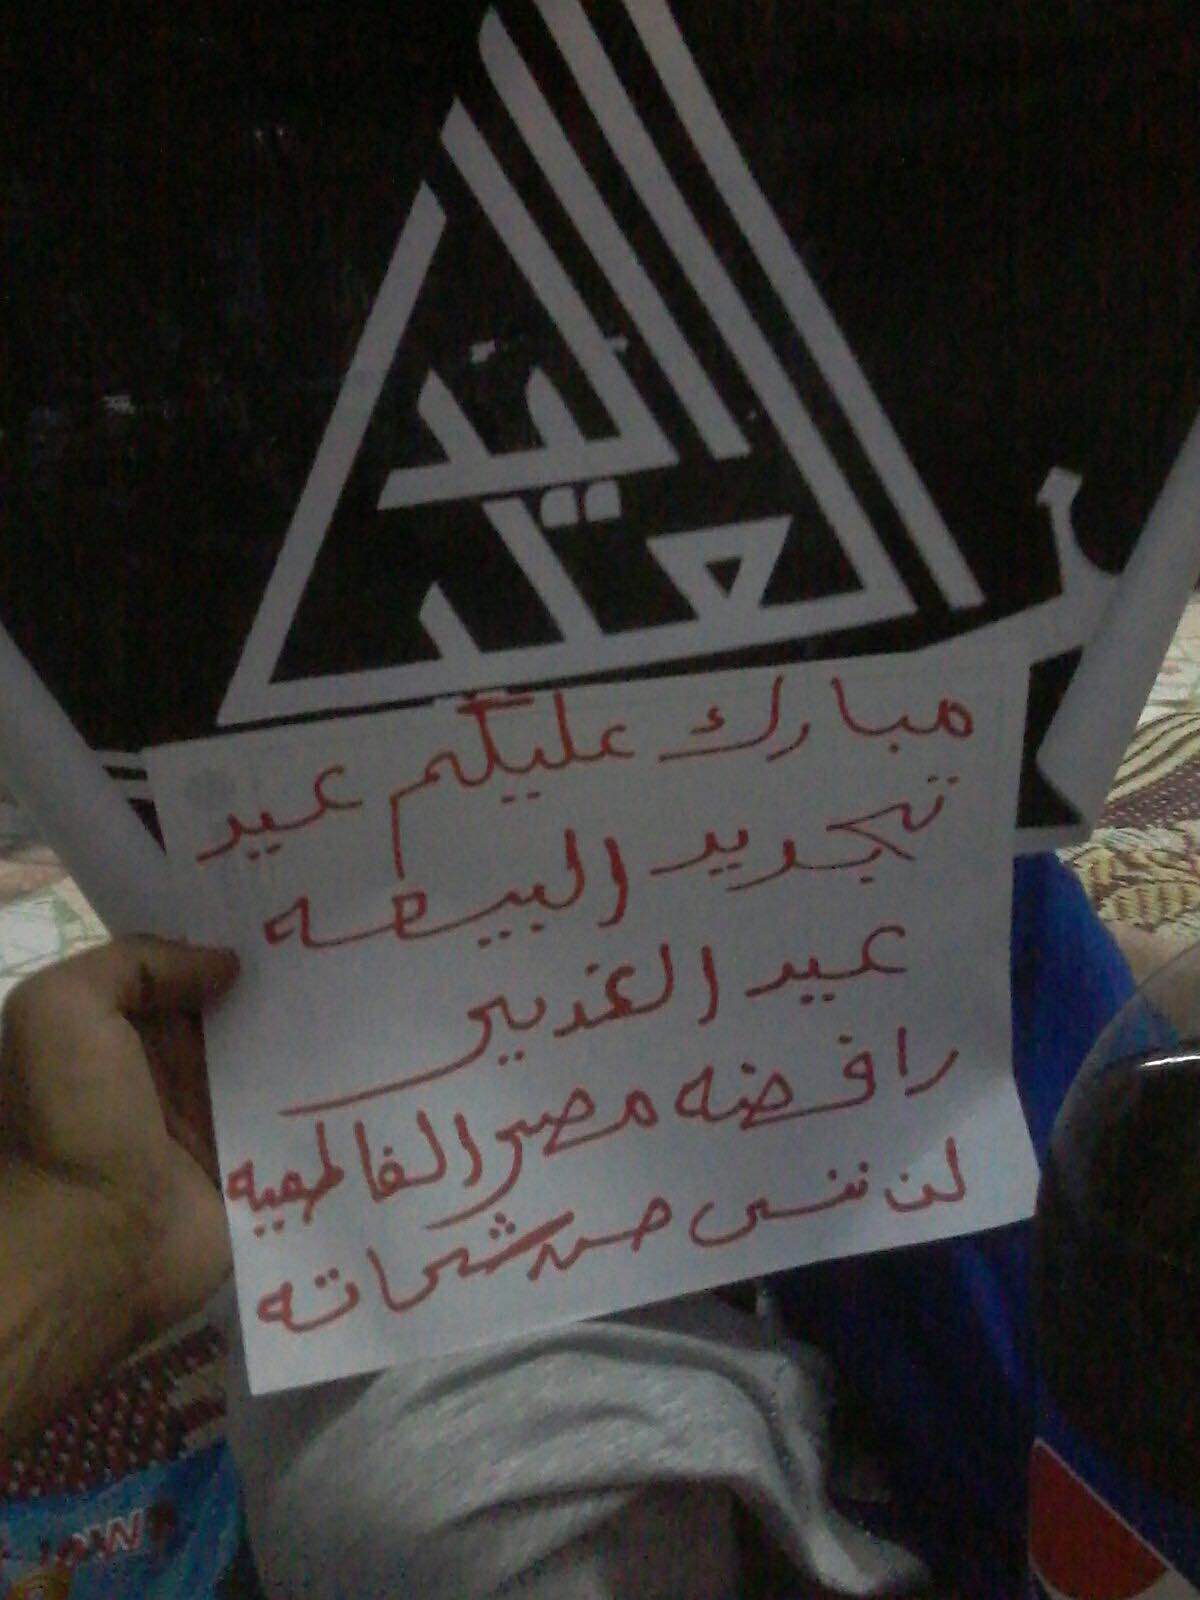 اليد
العليا
مبارك عليكم عيد
تجديد البيعه
عيد الغدير
رافضه مصر الفاطميه
لن ننسى حسن شحاته